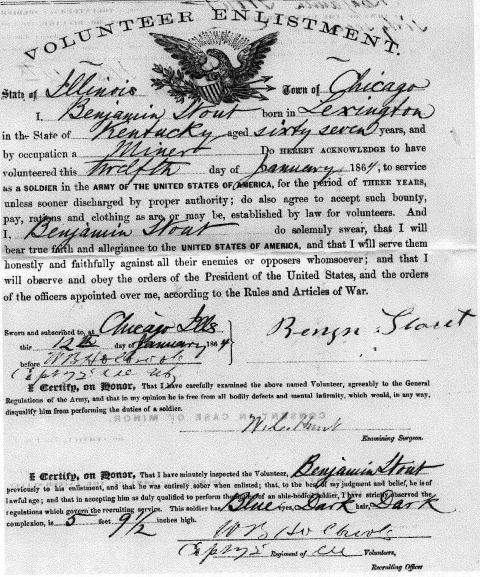 VOLUNTEER ENLISTMENT.
State of Illinois Town of Chicago
I, Benjamin Stout born in Lexington
in the State of Kentucky aged sixty seven years, and
by occupation a Miner Do HEREBY ACKNOWLEDGE to have
volunteered this twelfth day of January 1864, to service
as a SOLDIER in the ARMY OF THE UNITED STATES OF AMERICA, for the period of THREE YEARS,
unless sooner discharged by proper authority; do also agree to accept such bounty,
pay, rations and clothing as are, or may be, established by law for volunteers. And
I Benjamin Stout do solemnly swear, that I will
bear true faith and allegiance to the UNITED STATES OF AMERICA, and that I will serve them
honestly and faithfully against all their enemies or opposers whomsoever; and that I
will observe and obey the orders of the President of the United States, and the orders
of the officers appointed over me, according to the Rules and Articles of War.
Sworn and subscribed to, at Chicago Ills
this 12th day of January 1864
before
Benjn Stout
I Certify, on Honor, That I have carefully examined the above named Volunteer, agreeably to the General
Regulations of the Army, and that in my opinion he is free from all bodily defects and mental infirmity, which would, in any way,
disqualify him from performing the duties of a soldier.
CONSENT IN CASE OF MINOR.
Examining Surgeon.
I Certify, on Honor, That I have minutely inspected the Volunteer, Benjamin Stout
previously to his enlistment, and that he was entirely sober when enlisted; that, to the best of my judgment and belief, he is of
lawful age; and that in accepting him as duly qualified to perform the duties of an able-bodied soldier, I have strictly observed the
regulations which govern the recruiting service. This soldier has Blue eyes, Dark hair, Dark
complexion, is 5 feet 9½ inches high.
Regiment of Ill Volunteers,
Recruiting Officer